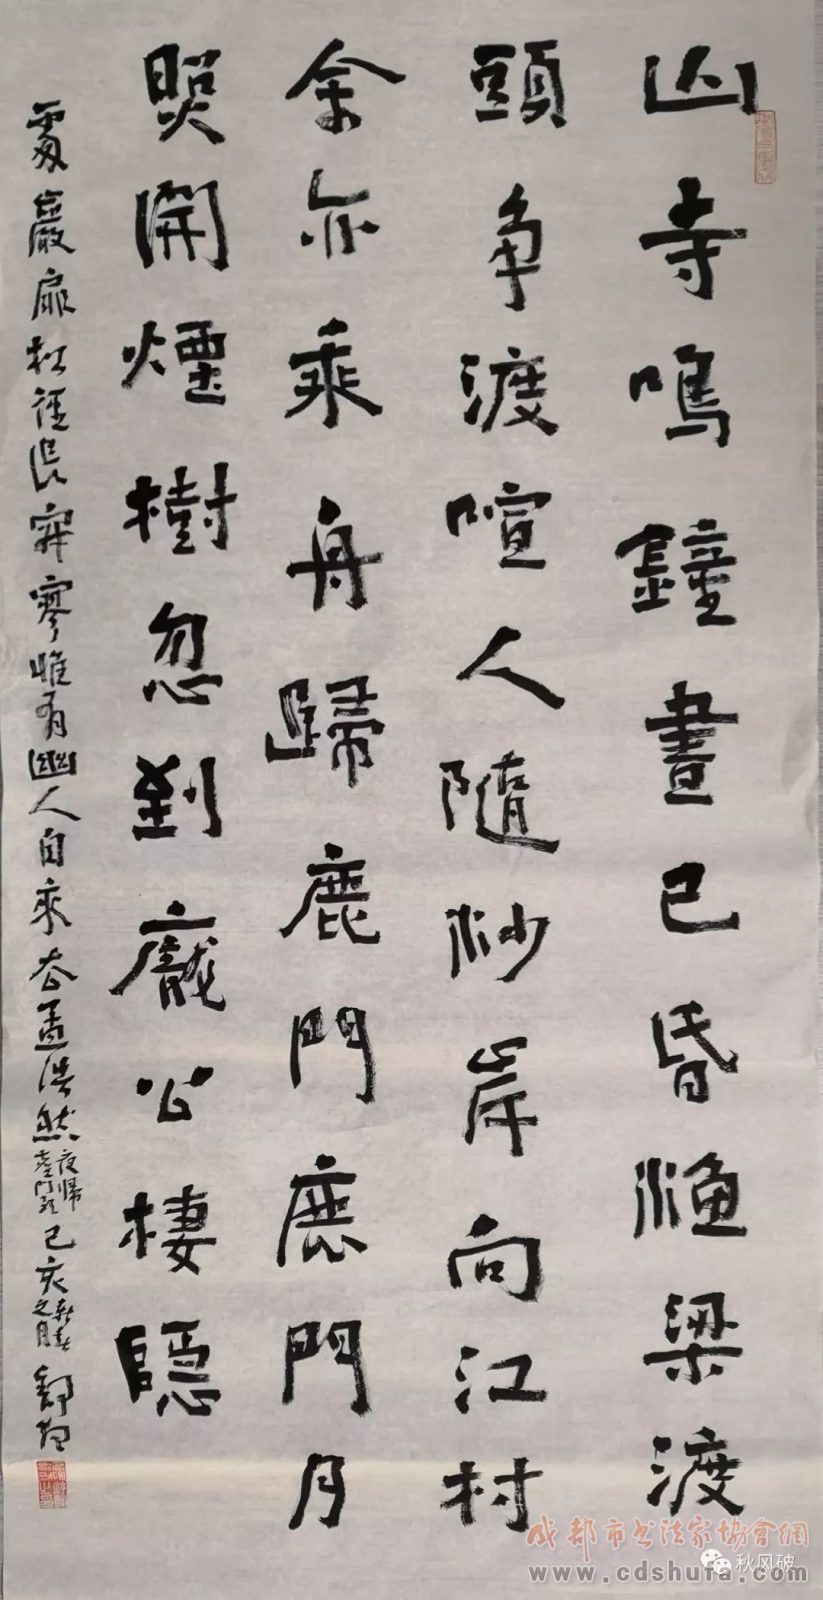 山寺鳴鐘晝已昏漁梁渡
頭争渡喧人隨沙岸向江村
余亦乘舟歸鹿門鹿門月
照開煙樹忽到龐公棲隱
處巖扉松徑長寂寥惟有幽人自來去孟浩然夜歸鹿門歌己亥之
成都市书法家協會網
www.cdshufa.com
秋风破